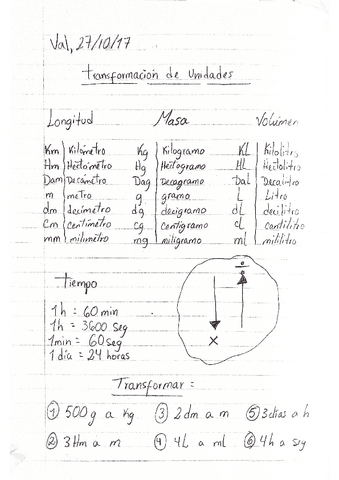 Val, 27/10/17
Transformacion de Unidades
Longitud Masa Volúmen
Km Kilómetro Kg Kilogramo KL Kilolitro
Hm Hectómetro Hg Hectogramo HL Hectolitro
Dam Decámetro Dag Decagramo DaL Decalitro
m metro g gramo L Litro
dm decímetro dg decigramo dL decilitro
Cm Centímetro cg Centigramo cL Centilitro
mm milímetro mg miligramo ml mililitro
Tiempo
1h = 60 min
1h = 3600 seg
1min = 60 seg
1 día = 24 horas
÷
x
Transformar :
① 500 g a kg ③ 2 dm a m ⑤ 3 dias a h
② 3 Hm a m ④ 4L a ml ⑥ 4 h a seg